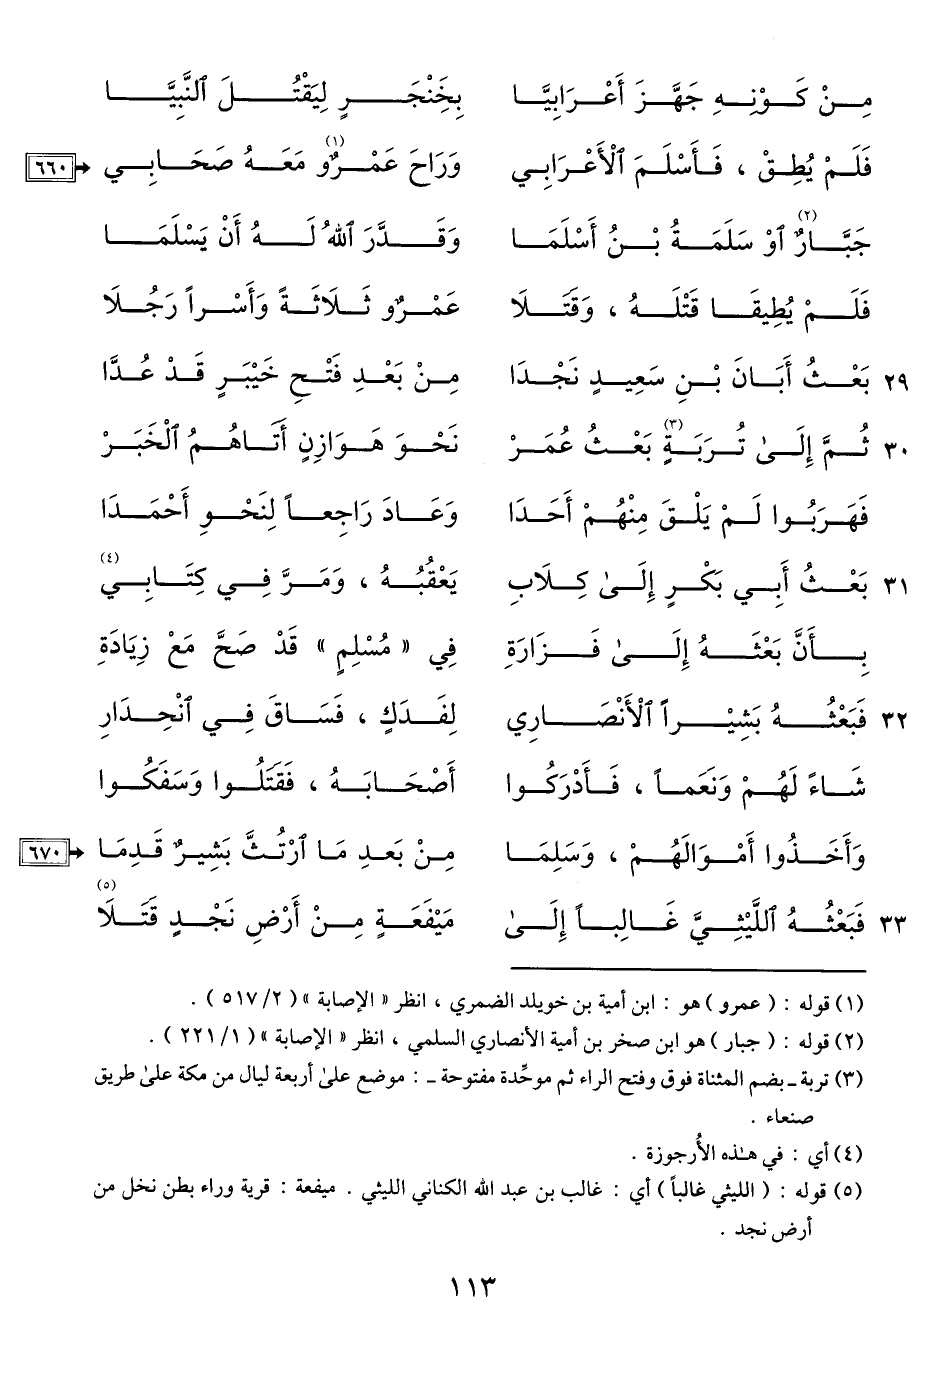 مِنْ كَوْنِهِ جَهَّزَ أَعْرَابِيَّا بِخَنْجَرٍ لِيَقْتُلَ ٱلنَّبِيَّا
فَلَمْ يُطِقْ ، فَأَسْلَمَ ٱلْأَعْرَابِي وَرَاحَ عَمْرٌو (١) مَعَهُ صَحَابِي ٦٦٠
جَبَّارٌ (٢) ٱوْ سَلَمَةُ بْنُ أَسْلَمَا وَقَدَّرَ ٱللهُ لَهُ أَنْ يَسْلَمَا
فَلَمْ يُطِيقَا قَتْلَهُ ، وَقَتَلَا عَمْرٌو ثَلَاثَةً وَأَسْراً رَجُلَا
٢٩ بَعْثُ أَبَانَ بْنِ سَعِيدٍ نَجْدَا مِنْ بَعْدِ فَتْحِ خَيْبَرٍ قَدْ عُدَّا
٣٠ ثُمَّ إِلَىٰ تُرَبَةٍ (٣) بَعْثُ عُمَرْ نَحْوَ هَوَازِنٍ أَتَاهُمُ ٱلْخَبَرْ
فَهَرَبُوا لَمْ يَلْقَ مِنْهُمْ أَحَدَا وَعَادَ رَاجِعاً لِنَحْوِ أَحْمَدَا
٣١ بَعْثُ أَبِي بَكْرٍ إِلَىٰ كِلَابِ يَعْقُبُهُ ، وَمَرَّ فِي كِتَابِي (٤)
بِأَنَّ بَعْثَهُ إِلَىٰ فَزَارَةِ فِي « مُسْلِمٍ » قَدْ صَحَّ مَعْ زِيَادَةِ
٣٢ فَبَعْثُهُ بَشِيْراً ٱلْأَنْصَارِي لِفَدَكٍ ، فَسَاقَ فِي ٱنْحِدَارِ
شَاءً لَهُمْ وَنَعَماً ، فَأَدْرَكُوا أَصْحَابَهُ ، فَقَتَلُوا وَسَفَكُوا
وَأَخَذُوا أَمْوَالَهُمْ ، وَسَلِمَا مِنْ بَعدِ مَا ٱرْتُثَّ بَشِيرٌ قَدِمَا ٦٧٠
٣٣ فَبَعْثُهُ ٱللَّيْثِيَّ غَالِباً إِلَىٰ مَيْفَعَةٍ مِنْ أَرْضِ نَجْدٍ قَتَلَا (٥)
(١) قوله : ( عمرو ) هو : ابن أمية بن خويلد الضمري ، انظر « الإصابة » ( ٢/ ٥١٧ ) .
(٢) قوله : ( جبار ) هو ابن صخر بن أمية الأنصاري السلمي ، انظر « الإصابة » ( ١/ ٢٢١ ) .
(٣) تربة ـ بضم المثناة فوق وفتح الراء ثم موحِّدة مفتوحة ـ : موضع علىٰ أربعة ليال من مكة علىٰ طريق
صنعاء .
(٤) أي : في هـٰذه الأُرجوزة .
(٥) قوله : ( الليثي غالباً ) أي : غالب بن عبد الله الكناني الليثي . ميفعة : قرية وراء بطن نخل من
أرض نجد .
١١٣